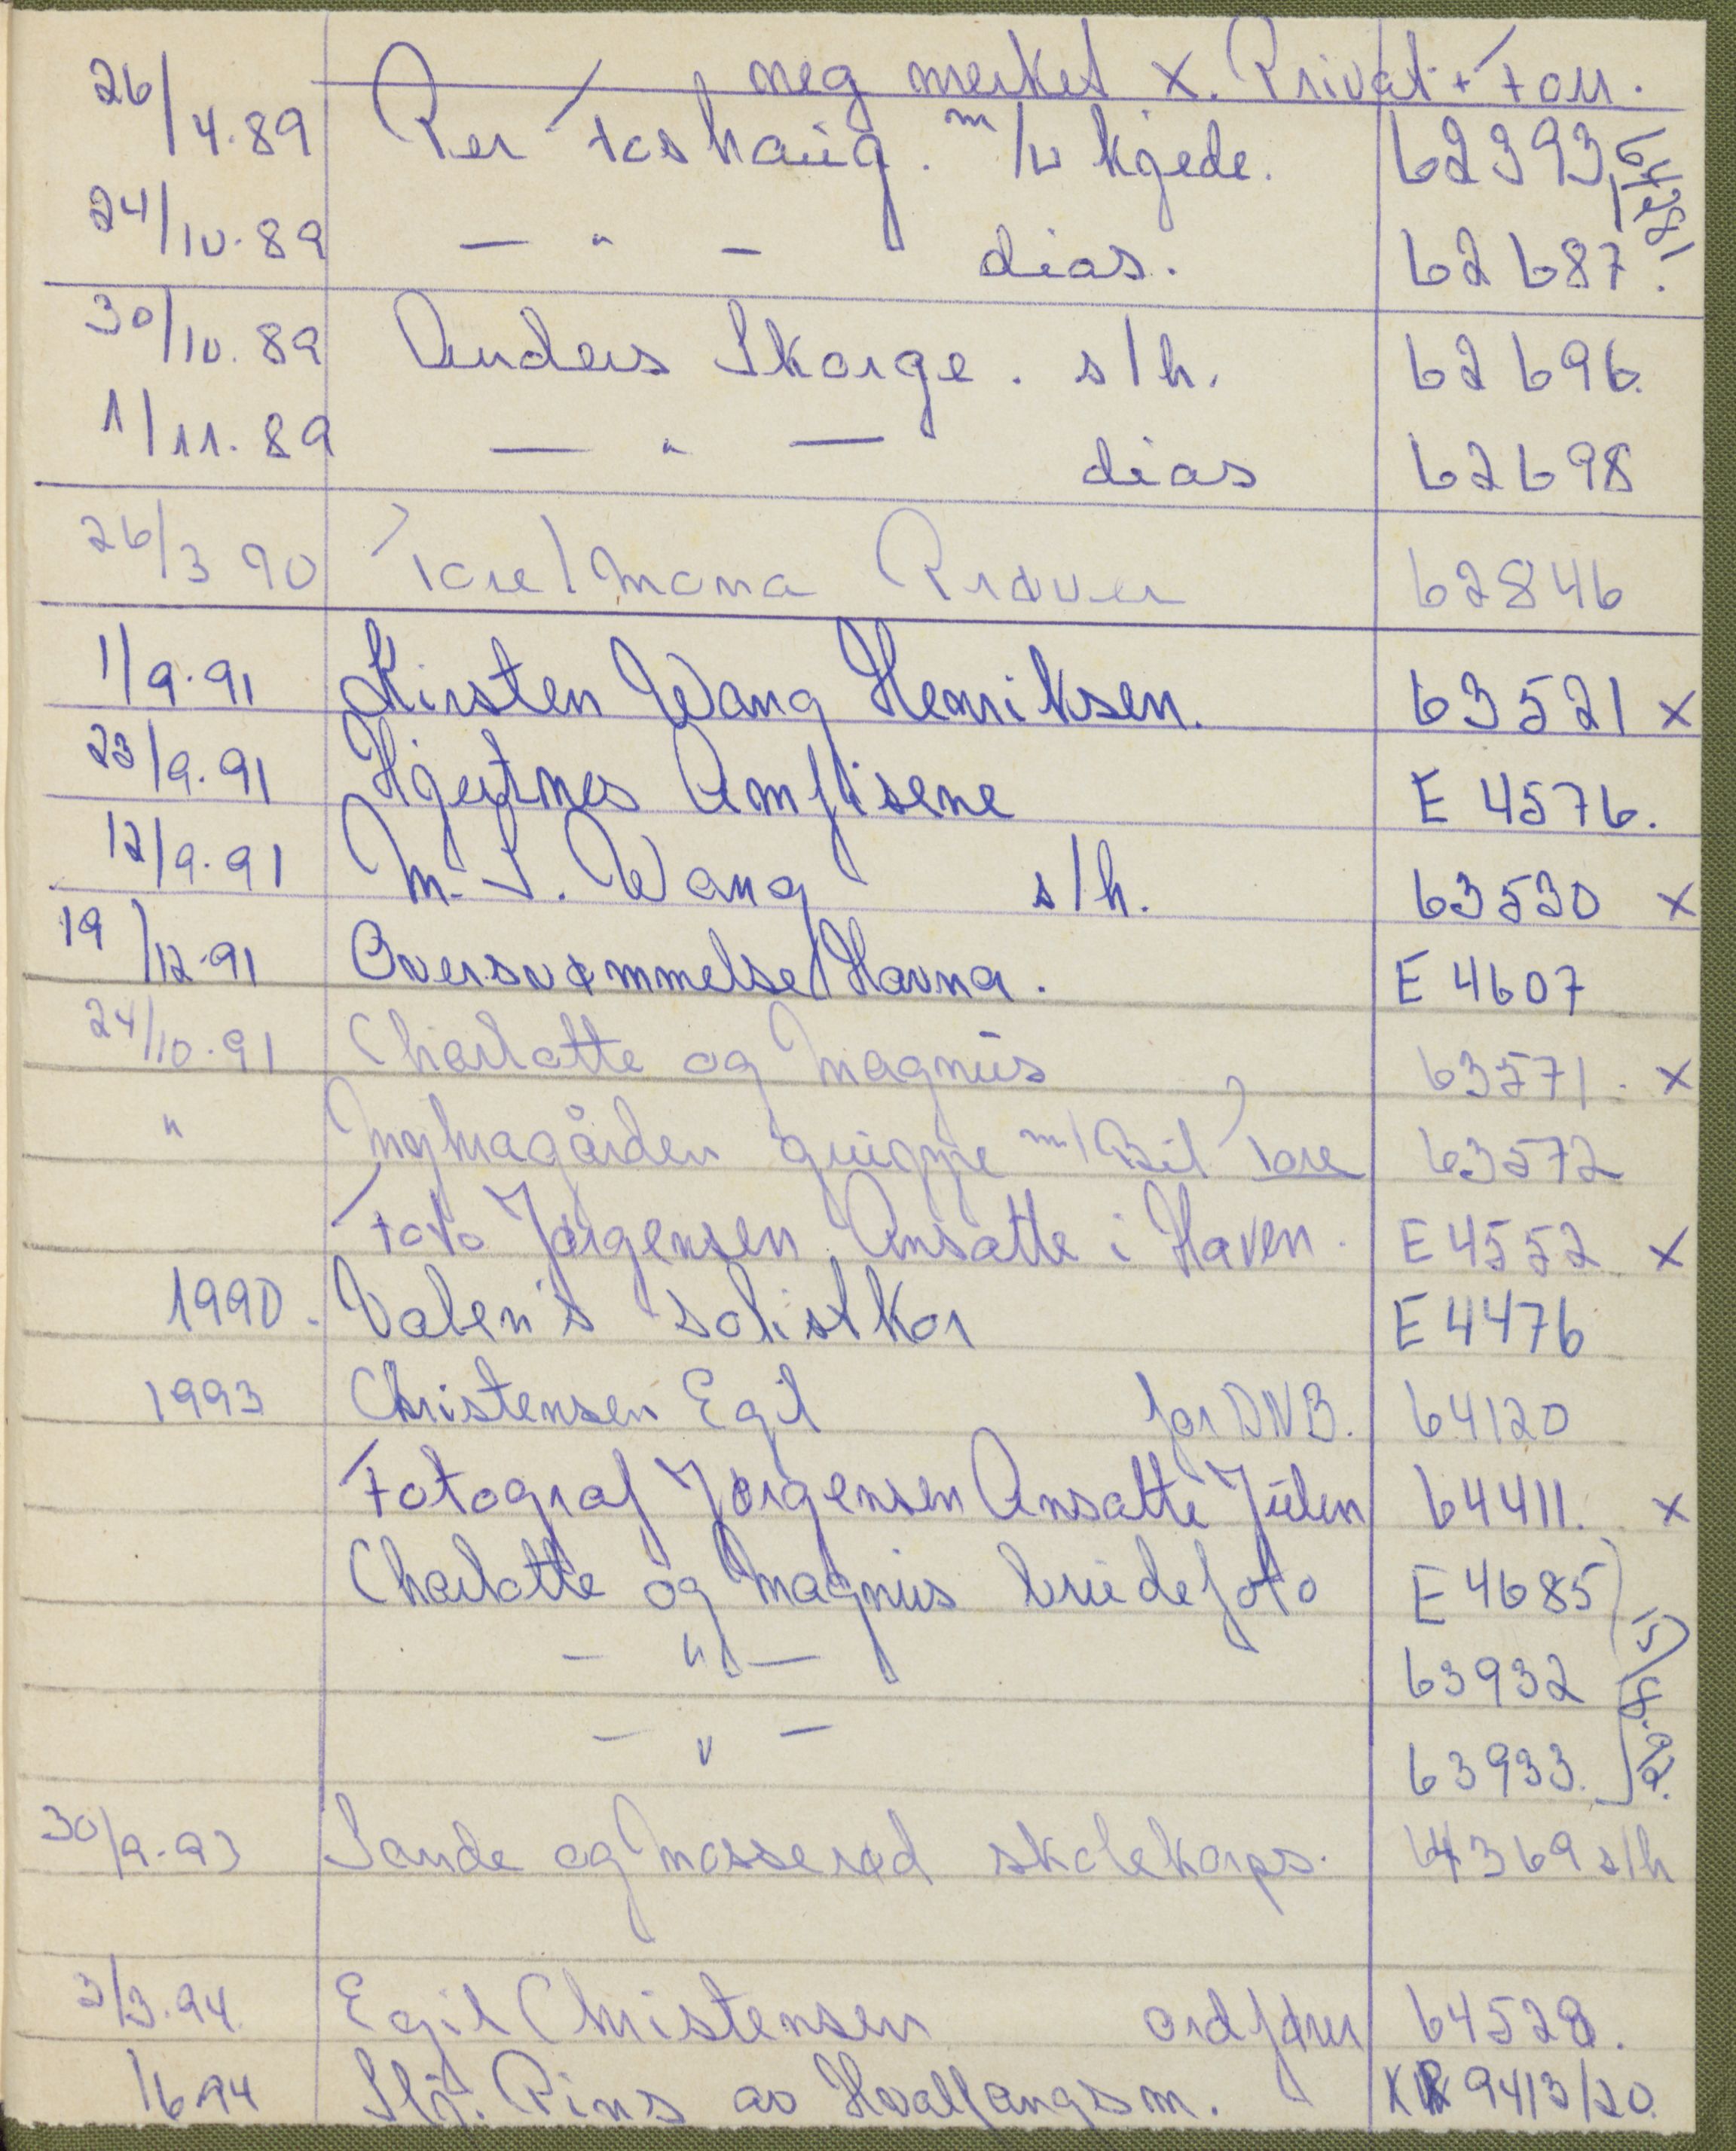 neg merket x. Privat + Forr.
26/4.89 Per Foshaug. m/u kjede. 62393 64281
24/10.89 — " — dias. 62687.
30/10.89 Anders Skorge. s/h. 62696.
1/11.89 — " — dias 62698
26/3 90 Tore/Mona Prøver 62846
1/9.91 Kirsten Wang Henriksen. 63521 x
23/9.91 Hjertnes Amfiscene E 4576.
12/9.91 M. S. Wang s/h. 63530 x
19/12.91 Oversvømmelse/Havna. E 4607
24/10.91 Charlotte og Magnus 63571. x
" Myhragården gruppe m/Bil Tore 63572
Foto Jørgensen. Ansatte i Haven. E 4552 x
1990. Valen's solistkor E 4476
1993 Christensen Egil for DNB. 64120
Fotograf Jørgensen Ansatte Julen 64411. x
Charlotte og Magnus brudefoto E 4685
— " — 63932 15/8.92.
— " — 63933.
30/9.93 Sande og Mosserød skolekorps. 64369 s/h
3/3.94. Egil Christensen ordfører 64528.
/6.94 Slg. Pins av Hvalfangsm. 9413/20.